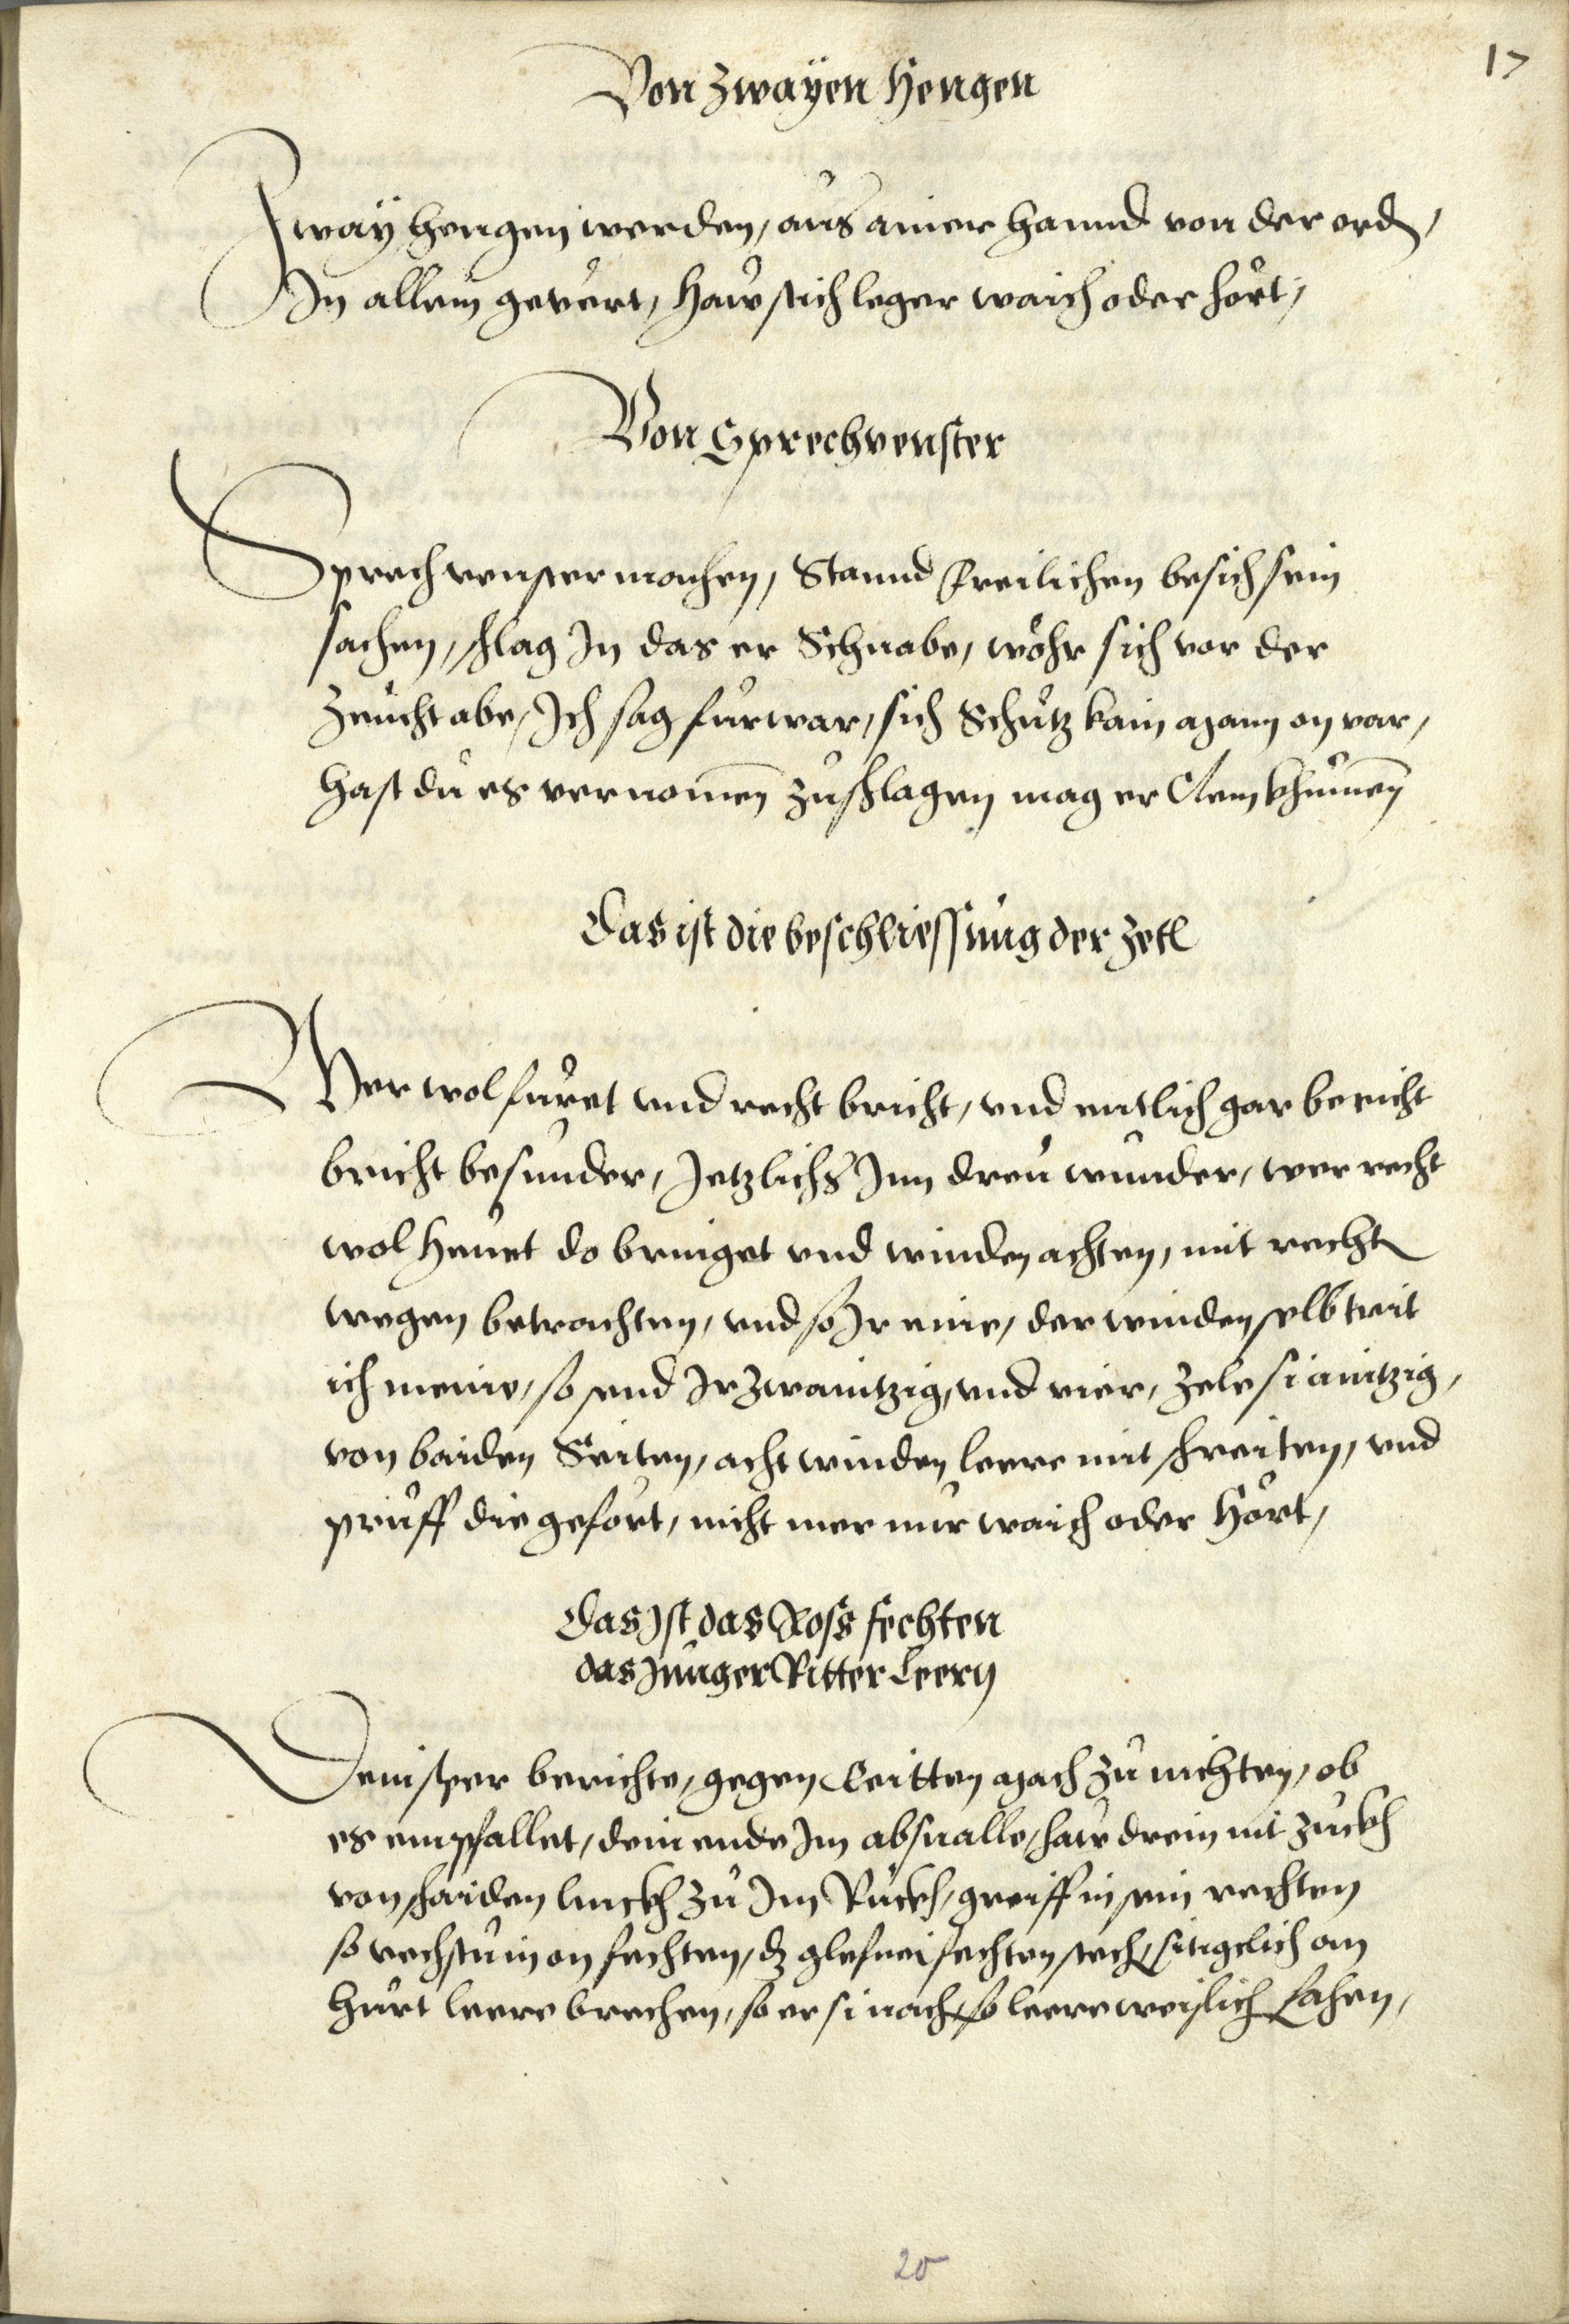 17
Von zwayen Hengen
Zway hengen werden, aus ainer hannd von der erd,
In allem gevert, Haw stich leger waich oder hört,
Von Sprechvenster
Sprechvenster machen, Stannd freilichen besich sein
sachen, schlag In das er Schnabe, wöhr sich vor der
Zeucht abe, Ich sag fürwar, sich Schutz kain man on var,
hast du es vernomen zuschlagen mag er Clem khumen
Das ist die beschliessung der zetl
Wer wol füret vnd recht bricht, vnd entlich gar bericht
bricht besunder, Jetzlichs Inn dreu wunder, wer recht
wol henget do bringet vnd winden achten, mit rechten
wegen betrachten, vnd so Ir eine, der winden selb trit
ich meine, so send Ir zwaintzig, vnd vier, zele si aintzig,
von baiden Seiten, acht winden leere mit schreiten, vnd
prüff die gefört, nicht mer nur waich oder Hört,
Das Ist das Ross fechten
das Junger Ritter Leern
Dein sper berichte, gegen Reitten mach zu nichten, ob
es empfallet, dein ende Im absnalle, haw drein nit zuckh
von schaiden linckh zu Im Ruckh, greiff in sein rechten
so vechstu in on fechten, dz glefnei fechten stech, sitigclich on
hurt leere brechen, so er si nach, so leere weislich fahen,
20